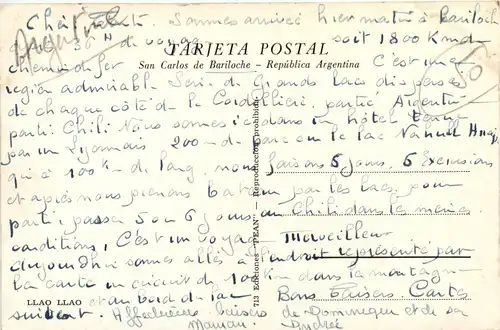 Sommes arrivés hier matin à Bariloche
36 H de voyage soit 1800 Km de
TARJETA POSTAL
chemin de fer C'est une
San Carlos de Bariloche - República Argentina
région admirable Série de Grands lacs disposés
de chaque côté de la Cordillière. partie Argentine
partie Chili Nous sommes ici dans un hôtel tenu
par un Lyonnais 200 m de parc sur le lac Nahuel Huapi
qui a 100 Km de long. nous faisons 5 jours. 5 Excursions
et après nous prenons bateau par les lacs pour
partir passer 5 ou 6 jours au Chili dans les mêmes
conditions, C'est un voyage Merveilleux
aujourd'hui sommes allés à l'endroit représenté par
la carte un circuit de 100 Km dans la montagne
LLAO LLAO
et au bord du lac Bons Baisers. Cartes
suivent. Affectueux baisers de Dominique et de sa
Maman. Andrée
713 Ediciones "PEAN" - Reproducción prohibida
Argentine
50